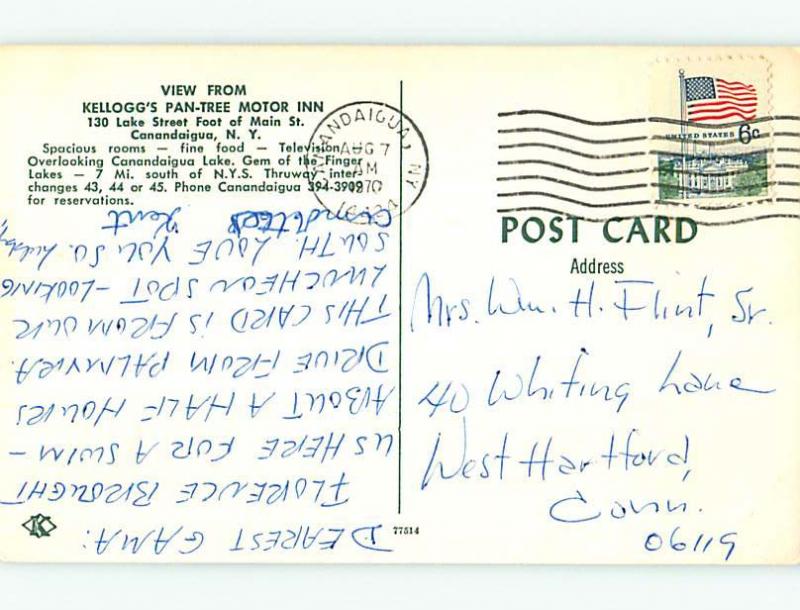 VIEW FROM
KELLOGG'S PAN-TREE MOTOR INN
130 Lake Street Foot of Main St.
Canandaigua, N. Y.
Spacious rooms — fine food — Television
Overlooking Canandaigua Lake. Gem of the Finger
Lakes — 7 Mi. south of N.Y.S. Thruway inter-
changes 43, 44 or 45. Phone Canandaigua 394-3909
for reservations.
DEAREST GAMA:
FLORENCE BROUGHT
US HERE FOR A SWIM -
ABOUT A HALF HOURS
DRIVE FROM PALMYRA.
THIS CARD IS FROM OUR
LUNCHEON SPOT - LOOKING
SOUTH. LOVE YOU SO.
Kent
K
77514
CANANDAIGUA, NY
AUG 7
AM
1970
14424
UNITED STATES 6c
POST CARD
Address
Mrs. Wm. H. Flint, Sr.
40 Whiting Lane
West Hartford,
Conn.
06119